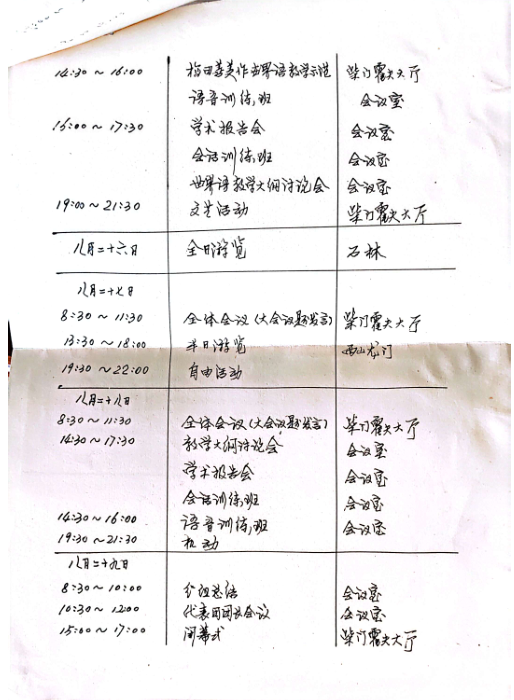 14:30～16:00 梅田善美作世界语教学示范 柴门霍夫大厅
语音训练班 会议室
15:00～17:30 学术报告会 会议室
会话训练班 会议室
世界语教学大纲讨论会 会议室
19:00～21:30 文艺活动 柴门霍夫大厅
八月二十六日 全日游览 石林
八月二十七日
8:30～11:30 全体会议(大会议题发言) 柴门霍夫大厅
13:30～18:00 半日游览 西山龙门
19:30～22:00 自由活动
八月二十八日
8:30～11:30 全体会议(大会议题发言) 柴门霍夫大厅
14:30～17:30 教学大纲讨论会 会议室
学术报告会 会议室
会话训练班 会议室
14:30～16:00 语音训练班 会议室
19:30～21:30 机动
八月二十九日
8:30～10:00 分组总结 会议室
10:30～12:00 代表团团长会议 会议室
15:00～17:00 闭幕式 柴门霍夫大厅